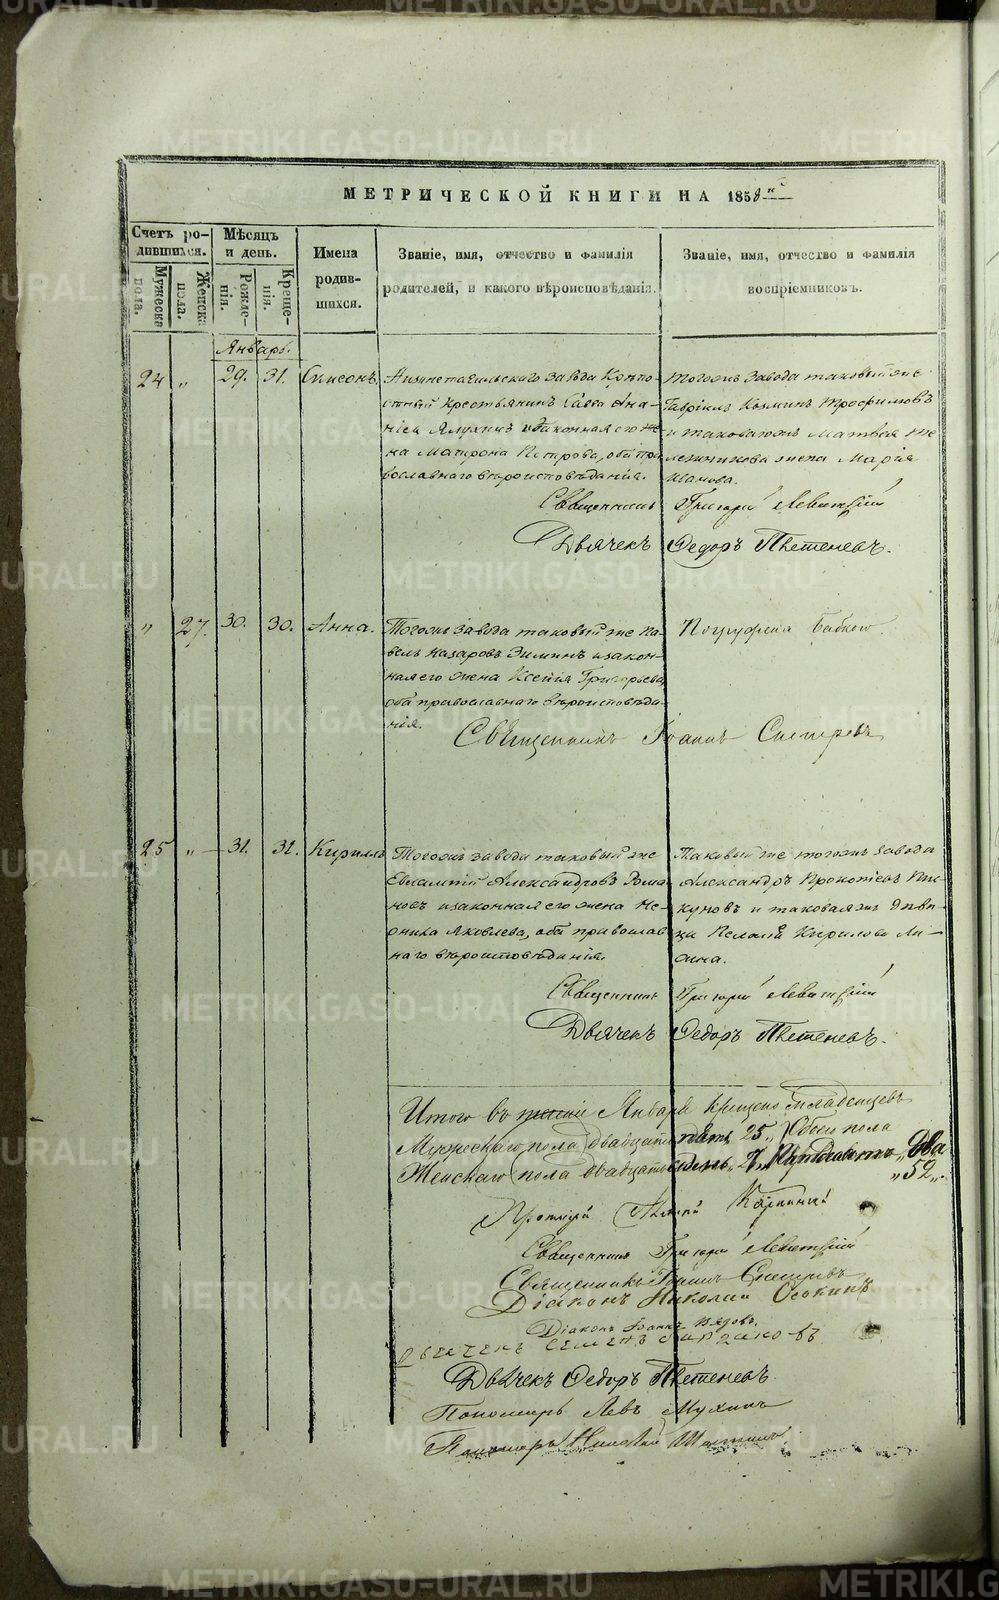 МЕТРИЧЕСКОЙ КНИГИ НА 1858й
Счетъ родившихся.
Мужеска пола.
Женска пола.
Мѣсяцъ и день.
Рожденія.
Крещенія.
Имена родившихся.
Званіе, имя, отчество и фамилія
родителей, и какого вѣроисповѣданія.
Званіе, имя, отчество и фамилія
воспріемниковъ.
Январь.
24 „ 29. 31. Симеонъ
Нижнетагильскаго завода Крѣпо-
стный Крестьянинъ Савва Ана-
ніевъ и законная его же-
на Матрона Петрова, оба пра-
вославнаго вѣроисповѣданія.
Тогожъ завода таковый же
Гавріилъ Козминъ Трофимовъ
и таковагожъ Матвея
жена Марія
Иванова.
Священникъ Григорій Левитскій
Дьячекъ Федоръ Плетеневъ.
„ 27. 30. 30. Анна.
Тогожъ завода таковый же Па-
велъ Назаровъ Зиминъ и закон-
ная его жена Ксенія Григорьева,
оба православнаго вѣроисповѣда-
нія.
Погружена бабкою
Священникъ Іоаннъ
25 „ 31. 31. Кириллъ
Тогожъ завода таковый же
Евлампій Александровъ Рома-
новъ и законная его жена Не-
онила Яковлева, оба православ-
наго вѣроисповѣданія.
Таковый же тогожъ завода
Александръ Прокопіевъ Пис-
куновъ и таковая же дѣви-
ца Пелагія Кирилова
Священникъ Григорій Левитскій
Дьячекъ Федоръ Плетеневъ.
Итого въ Январѣ крещено младенцевъ
Мужескаго пола двадцать пять 25 Обоего пола
Женскаго пола двадцать семь 27 Пятьдесятъ два
„52„.
Протоіерей Карпинскій
Священникъ Григорій Левитскій
Священникъ Іоаннъ
Діаконъ Николай Осокинъ
Діаконъ Іоаннъ
Дьячекъ Семенъ
Дьячекъ Федоръ Плетеневъ.
Пономарь Левъ Мухинъ
Пономарь Николай
METRIKI.GASO-URAL.RU